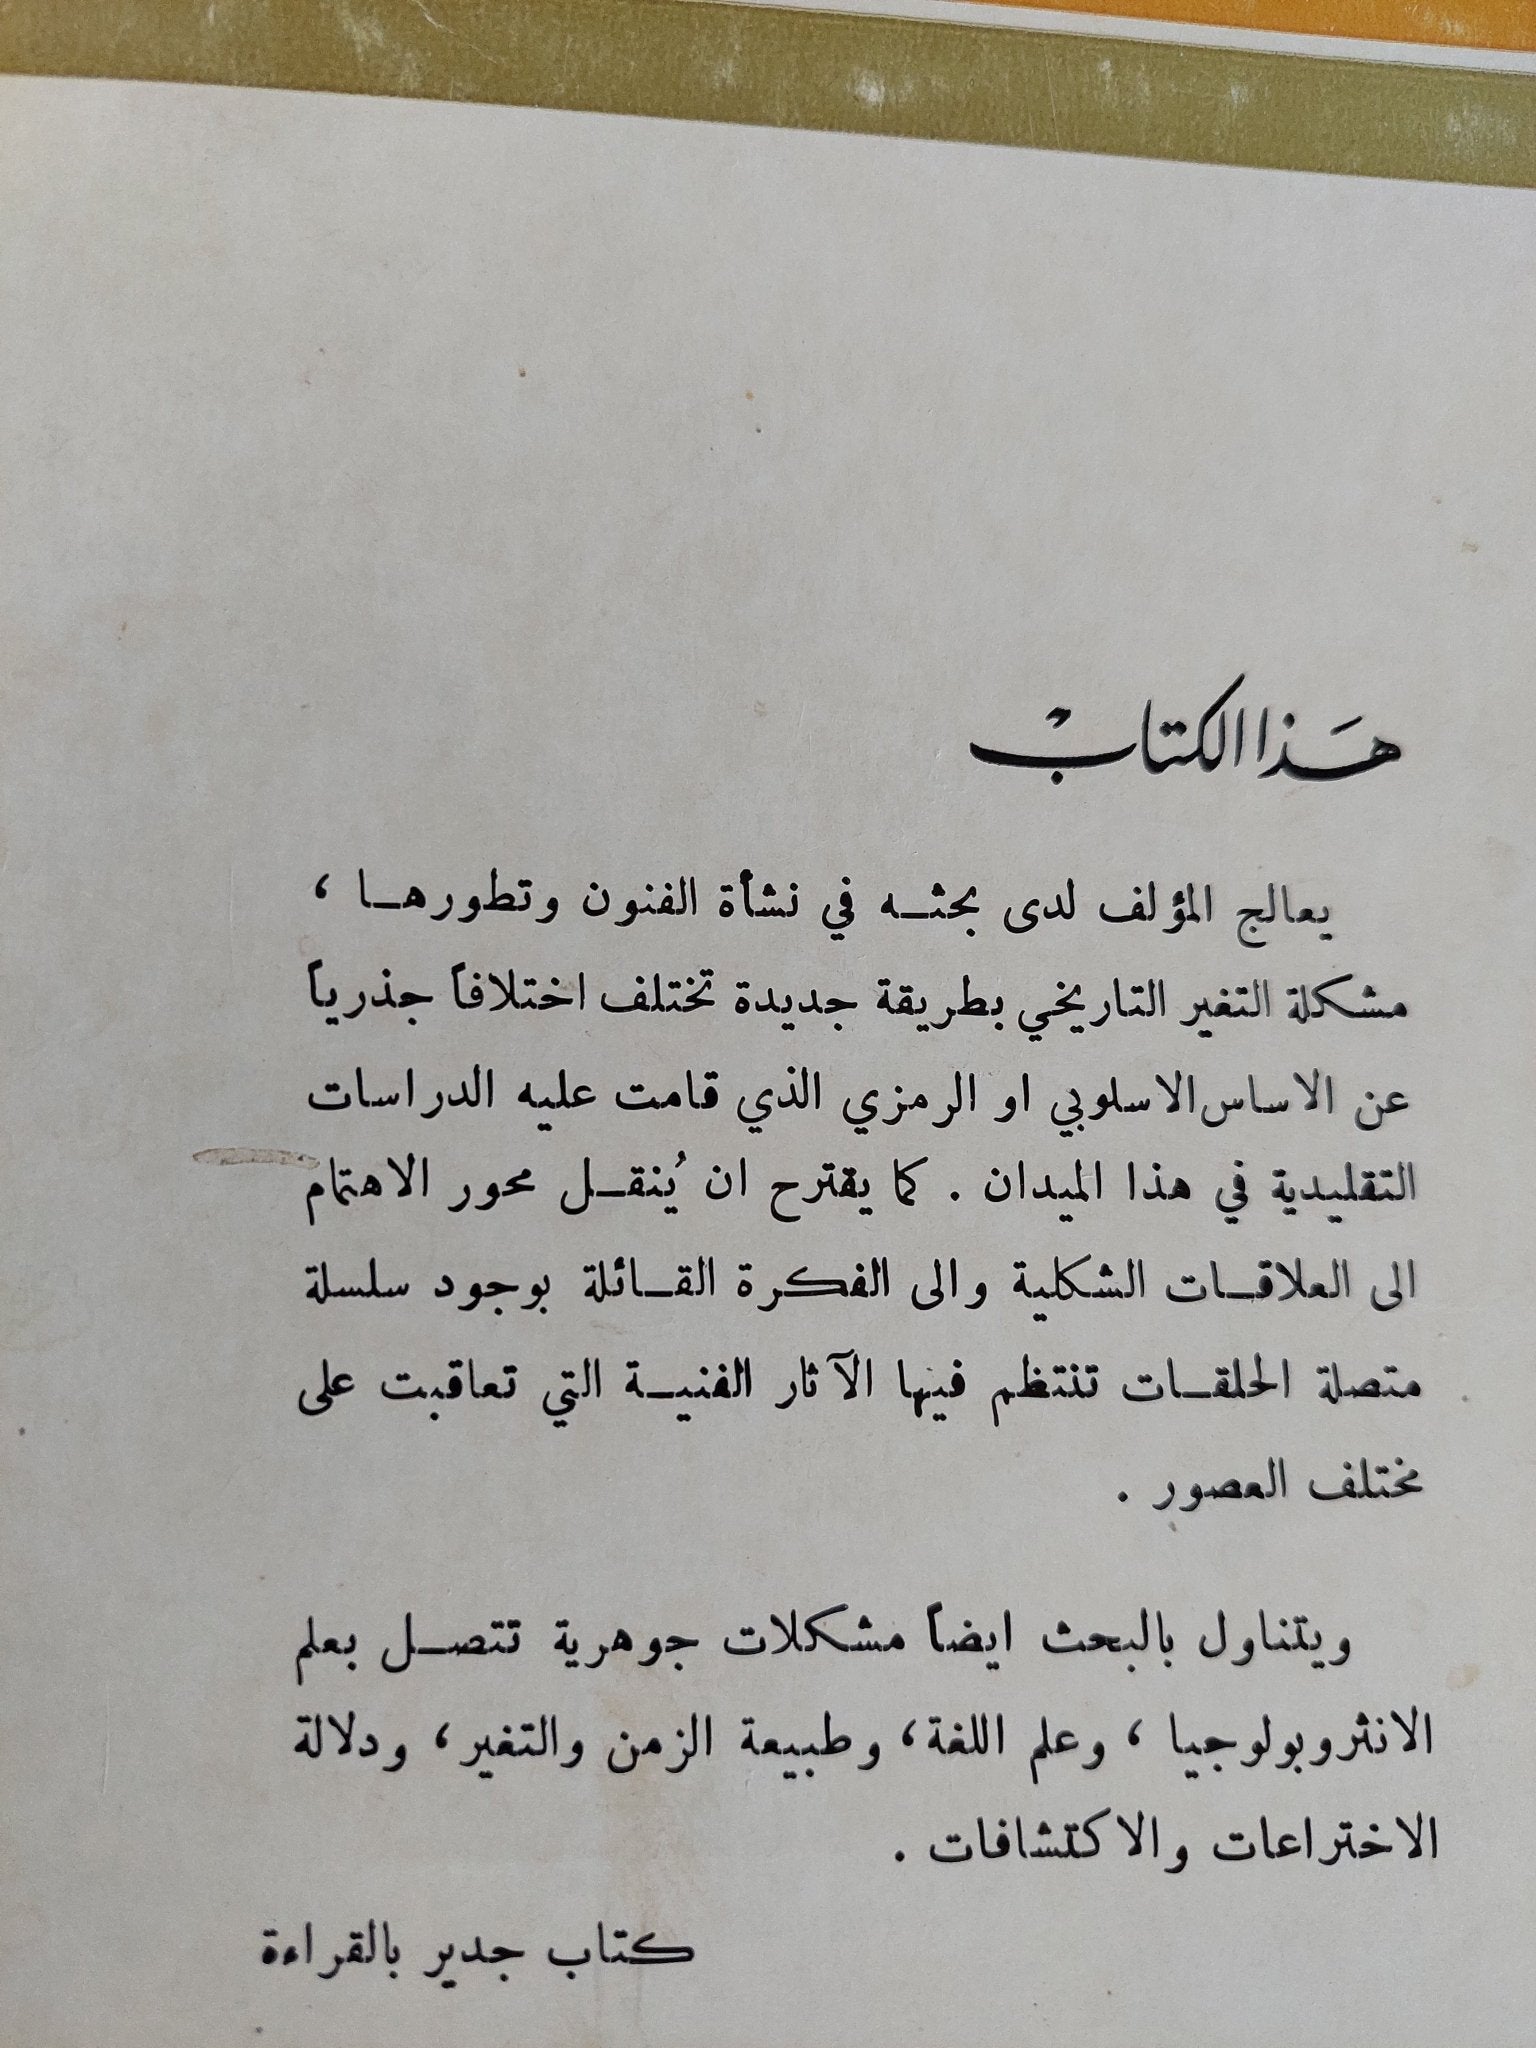 هَذا الكتابْ
يعالج المؤلف لدى بحثـه في نشأة الفنون وتطورهـا ،
مشكلة التغير التاريخي بطريقة جديدة تختلف اختلافاً جذرياً
عن الاساس الاسلوبي او الرمزي الذي قامت عليه الدراسات
التقليدية في هذا الميدان . كما يقترح ان يُنقـل محور الاهتمام
الى العلاقـات الشكلية والى الفكرة القـائلة بوجود سلسلة
متصلة الحلقـات تنتظم فيها الآثار الفنيـة التي تعاقبت على
مختلف العصور .
ويتناول بالبحث ايضاً مشكلات جوهرية تتصـل بعلم
الانثروبولوجيا ، وعلم اللغة، وطبيعة الزمن والتغير، ودلالة
الاختراعات والاكتشافات .
كتاب جدير بالقراءة